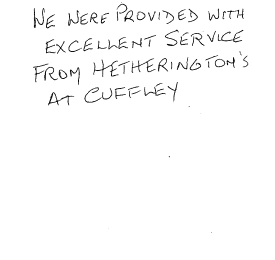 WE WERE PROVIDED WITH
EXCELLENT SERVICE
FROM HETHERINGTON'S
AT CUFFLEY